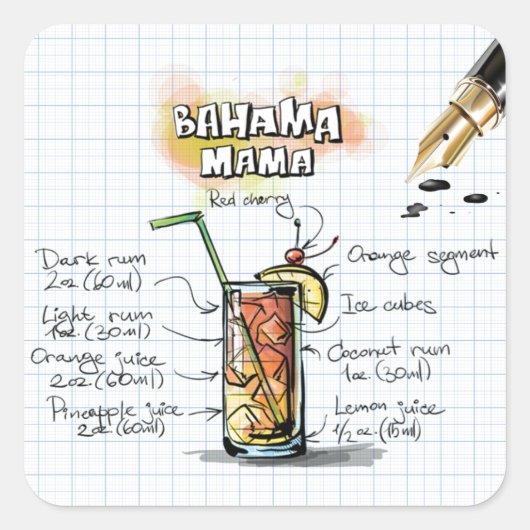 BAHAMA
MAMA
Red cherry
Dark rum
2oz.(60ml)
Light rum
1oz.(30ml)
Orange juice
2oz.(60ml)
Pineapple juice
2oz.(60ml)
Orange segment
Ice cubes
Coconut rum
1oz.(30ml)
Lemon juice
1/2oz.(15ml)